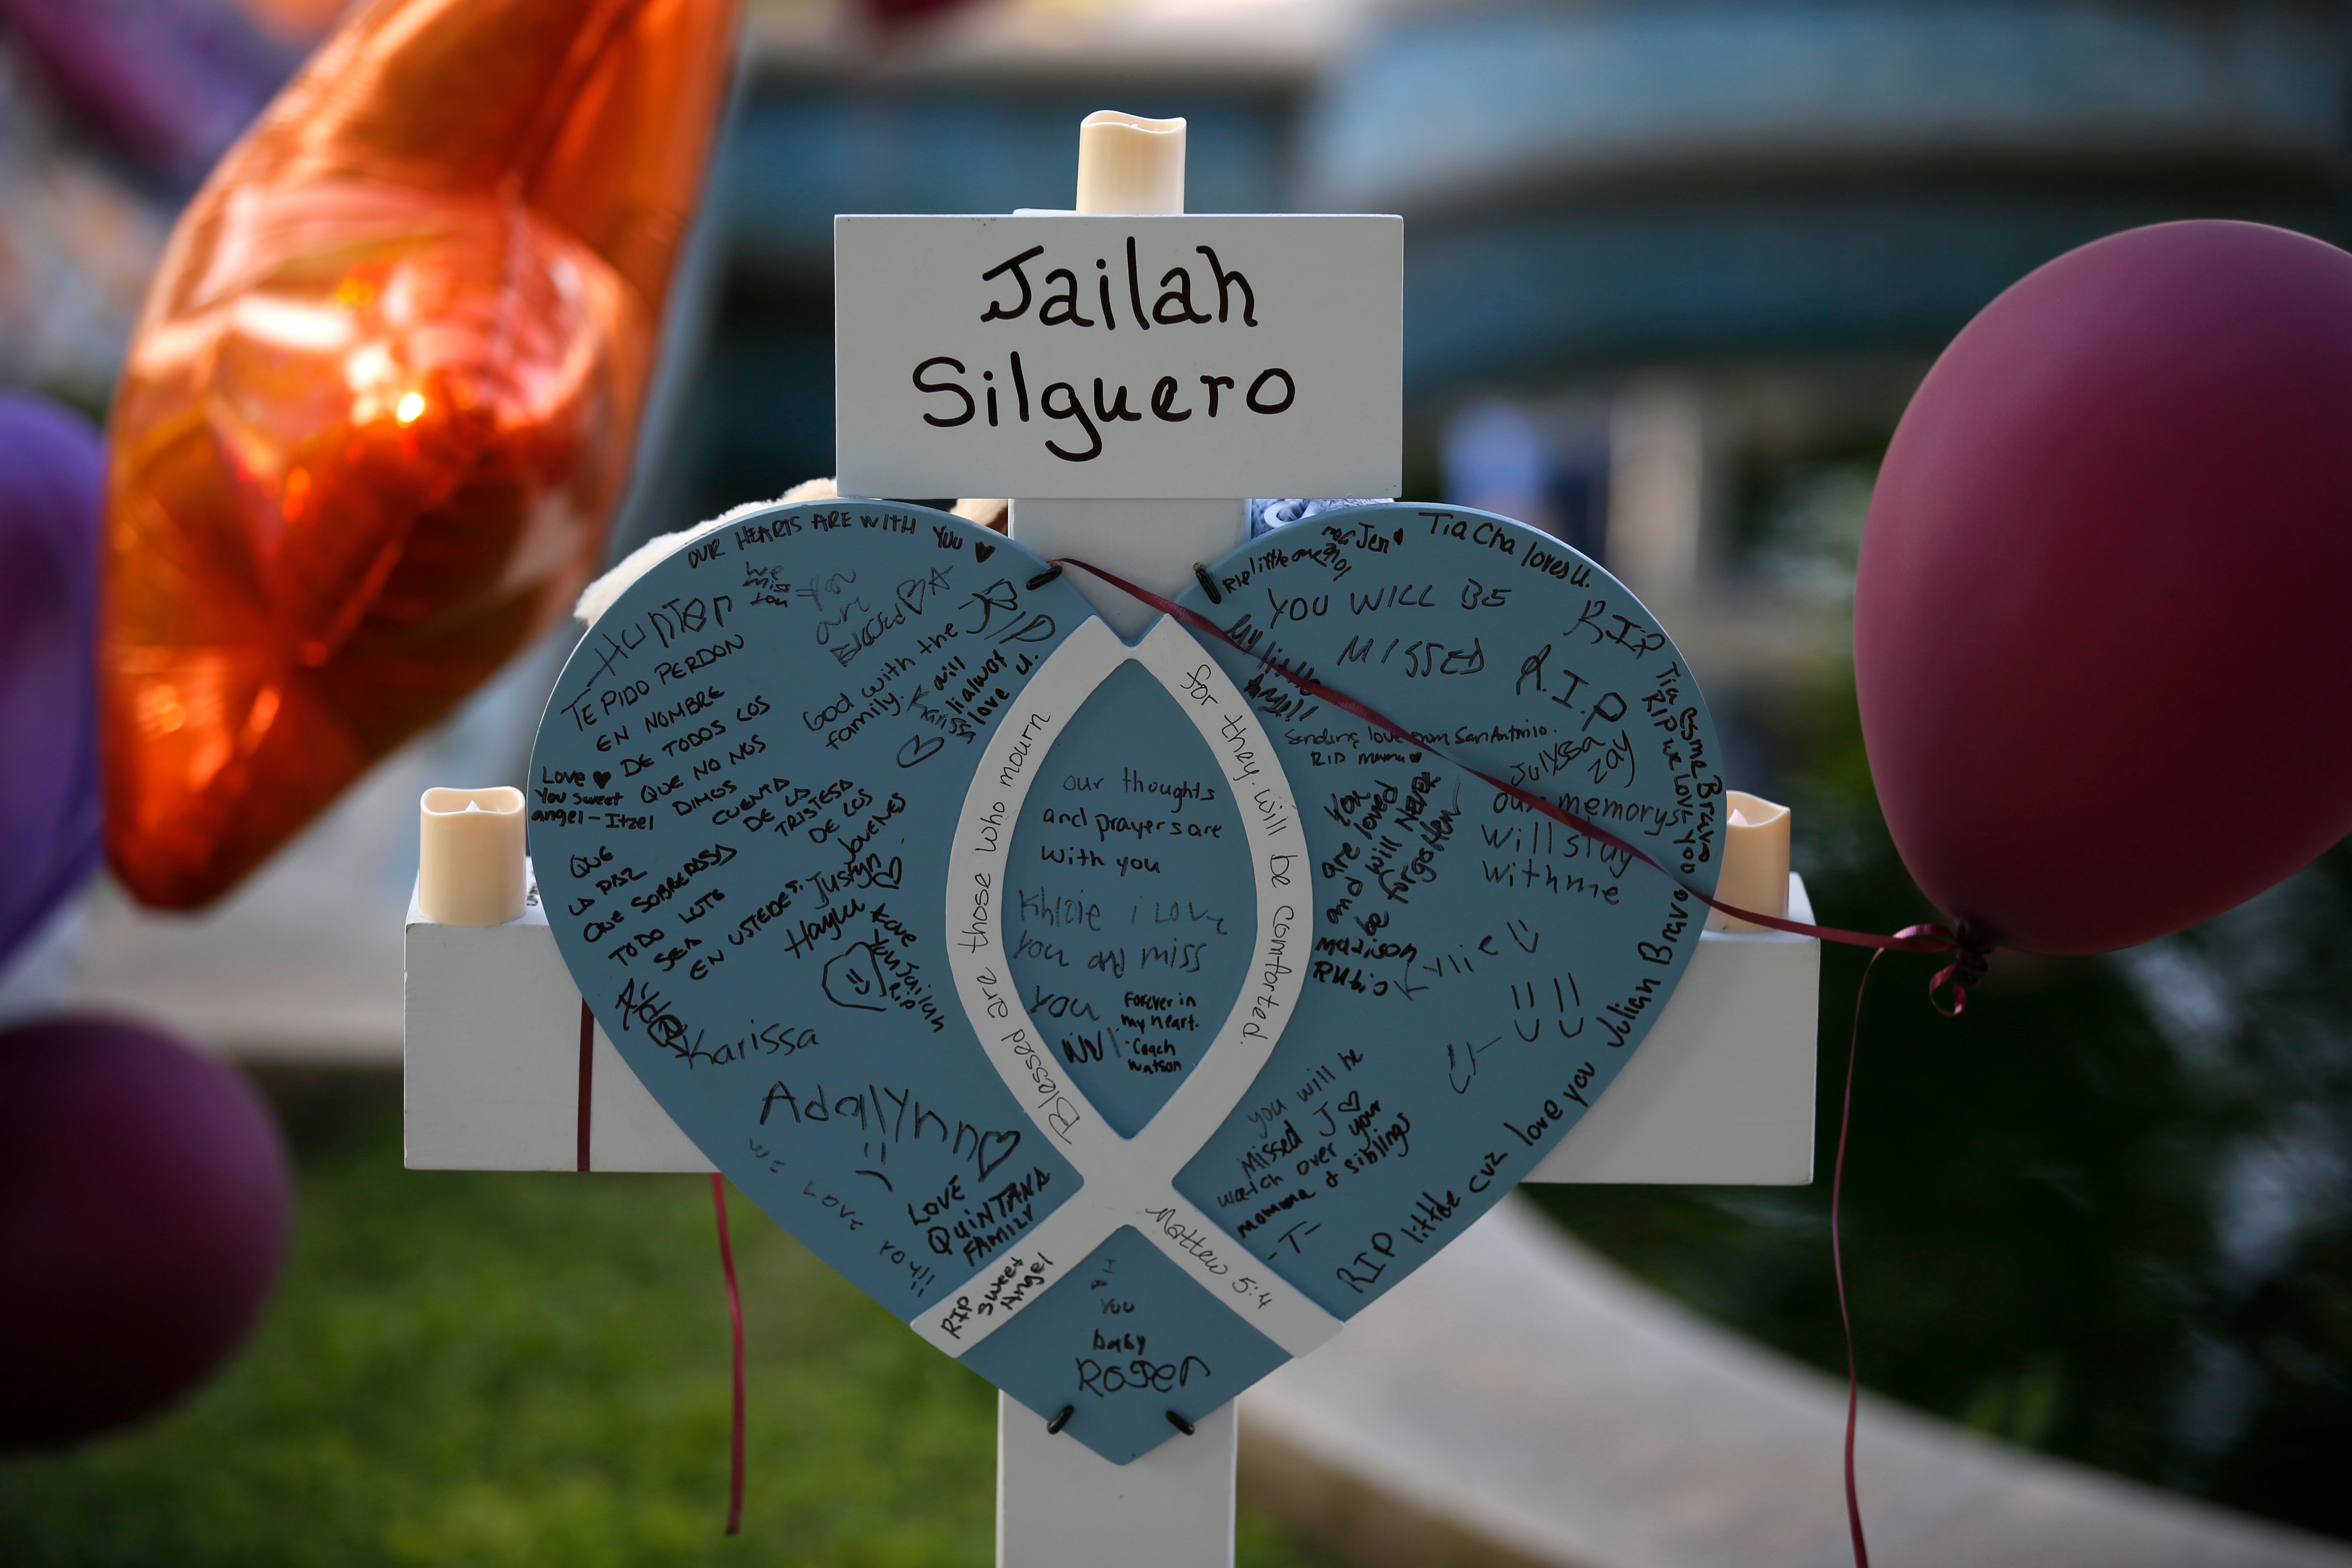 Jailah
Silguero
OUR HEARTS ARE WITH YOU
We
Miss
You
You
are
Blessed
RIP
Hunter
TE PIDO PERDON
EN NOMBRE
DE TODOS LOS
QUE NO NOS
DIMOS
CUENTA
DE LA
TRISTESA
DE LOS
JOVENES
QUE
LA PAZ
QUE SOBREPASA
TODO
SEA
EN USTEDES.
God with the
family.
Karissa will
always
love u.
Love
You Sweet
angel-Itzel
Justyn
Haylee
Love
you Jailah
RIP
Karissa
Adalynn
we love you!!!
LOVE
QUINTANA
FAMILY
Blessed are those who mourn
for they will be comforted.
Matthew 5:4
RIP
Sweet
Angel
our thoughts
and prayers are
with you
Khloie i Love
you and miss
you
Forever in
my heart.
-Coach
Watson
You
baby
ROJER
RIP little one
Jen
Tia Cha loves U.
YOU WILL BE
MISSED
My little
Angel
R.I.P
R.I.P
Sending love from San Antonio.
RIP mama
Julyssa
Zay
Tia Esme Bravo
RIP we Love you
You
are loved
and will Never
be forgotten
Madison
Rubio
our memorys
will stay
with me
Kylie
you will be
missed J
watch over your
momma & siblings
-T-
RIP little cuz love you Julian Bravo